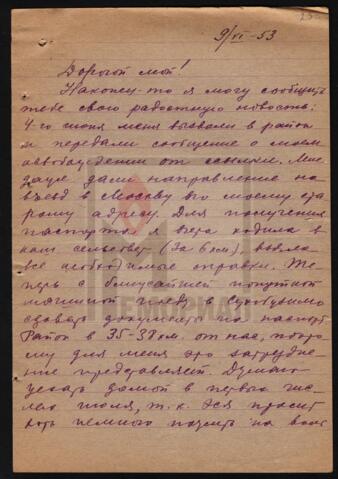 9/VI-53
Дорогой мой!
Наконец-то я могу сообщить
тебе свою радостную новость:
4-го июня меня вызвали в район
и передали сообщение о моем
освобождении от ссылки. Мне
даже дали направление на
въезд в Москву по моему ста
рому адресу. Для получения
паспорта я вчера ходила в
наш сельсовет (за 6 км), взяла
все необходимые справки. Те
перь с ближайшей попутной
машиной поеду в
сдавать документы на паспорт
Район в 35-38 км. от нас, поэто
му для меня это затрудне
ние представляет. Думаю
уехать домой в первых чис
лах июля, т.к. Эся просит
хоть немного пожить на воле
МЕМОРИАЛ